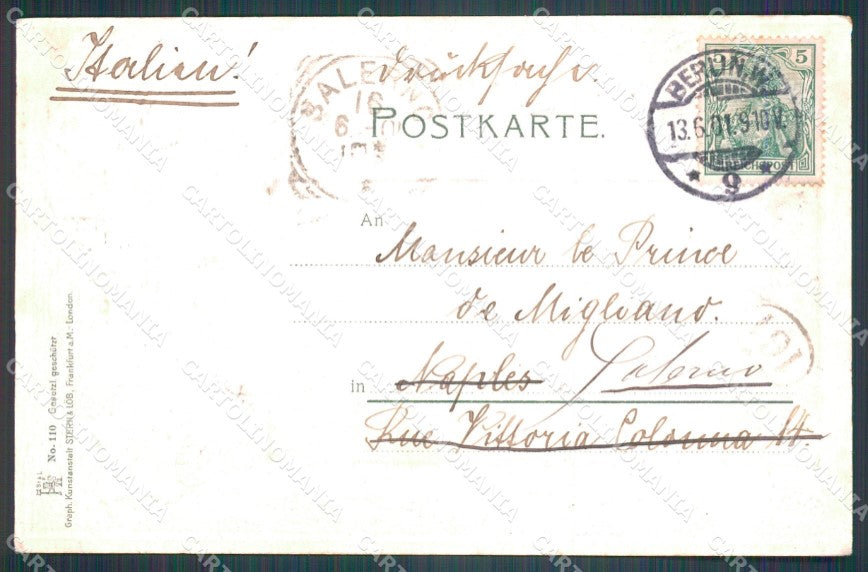 Italien!
Drucksache.
SALERNO
16
6
POSTKARTE.
5
REICHSPOST
BERLIN.W.
13.6.01.9-10V.
* 9 *
An
Monsieur le Prince
de Migliano.
in Naples Salerno
Rue Vittoria Colonna 14
101
No. 110 Gesetzl geschützt
Graph. Kunstanstalt STERN & LÖB, Frankfurt a.M., London.
CARTOLINOMANIA